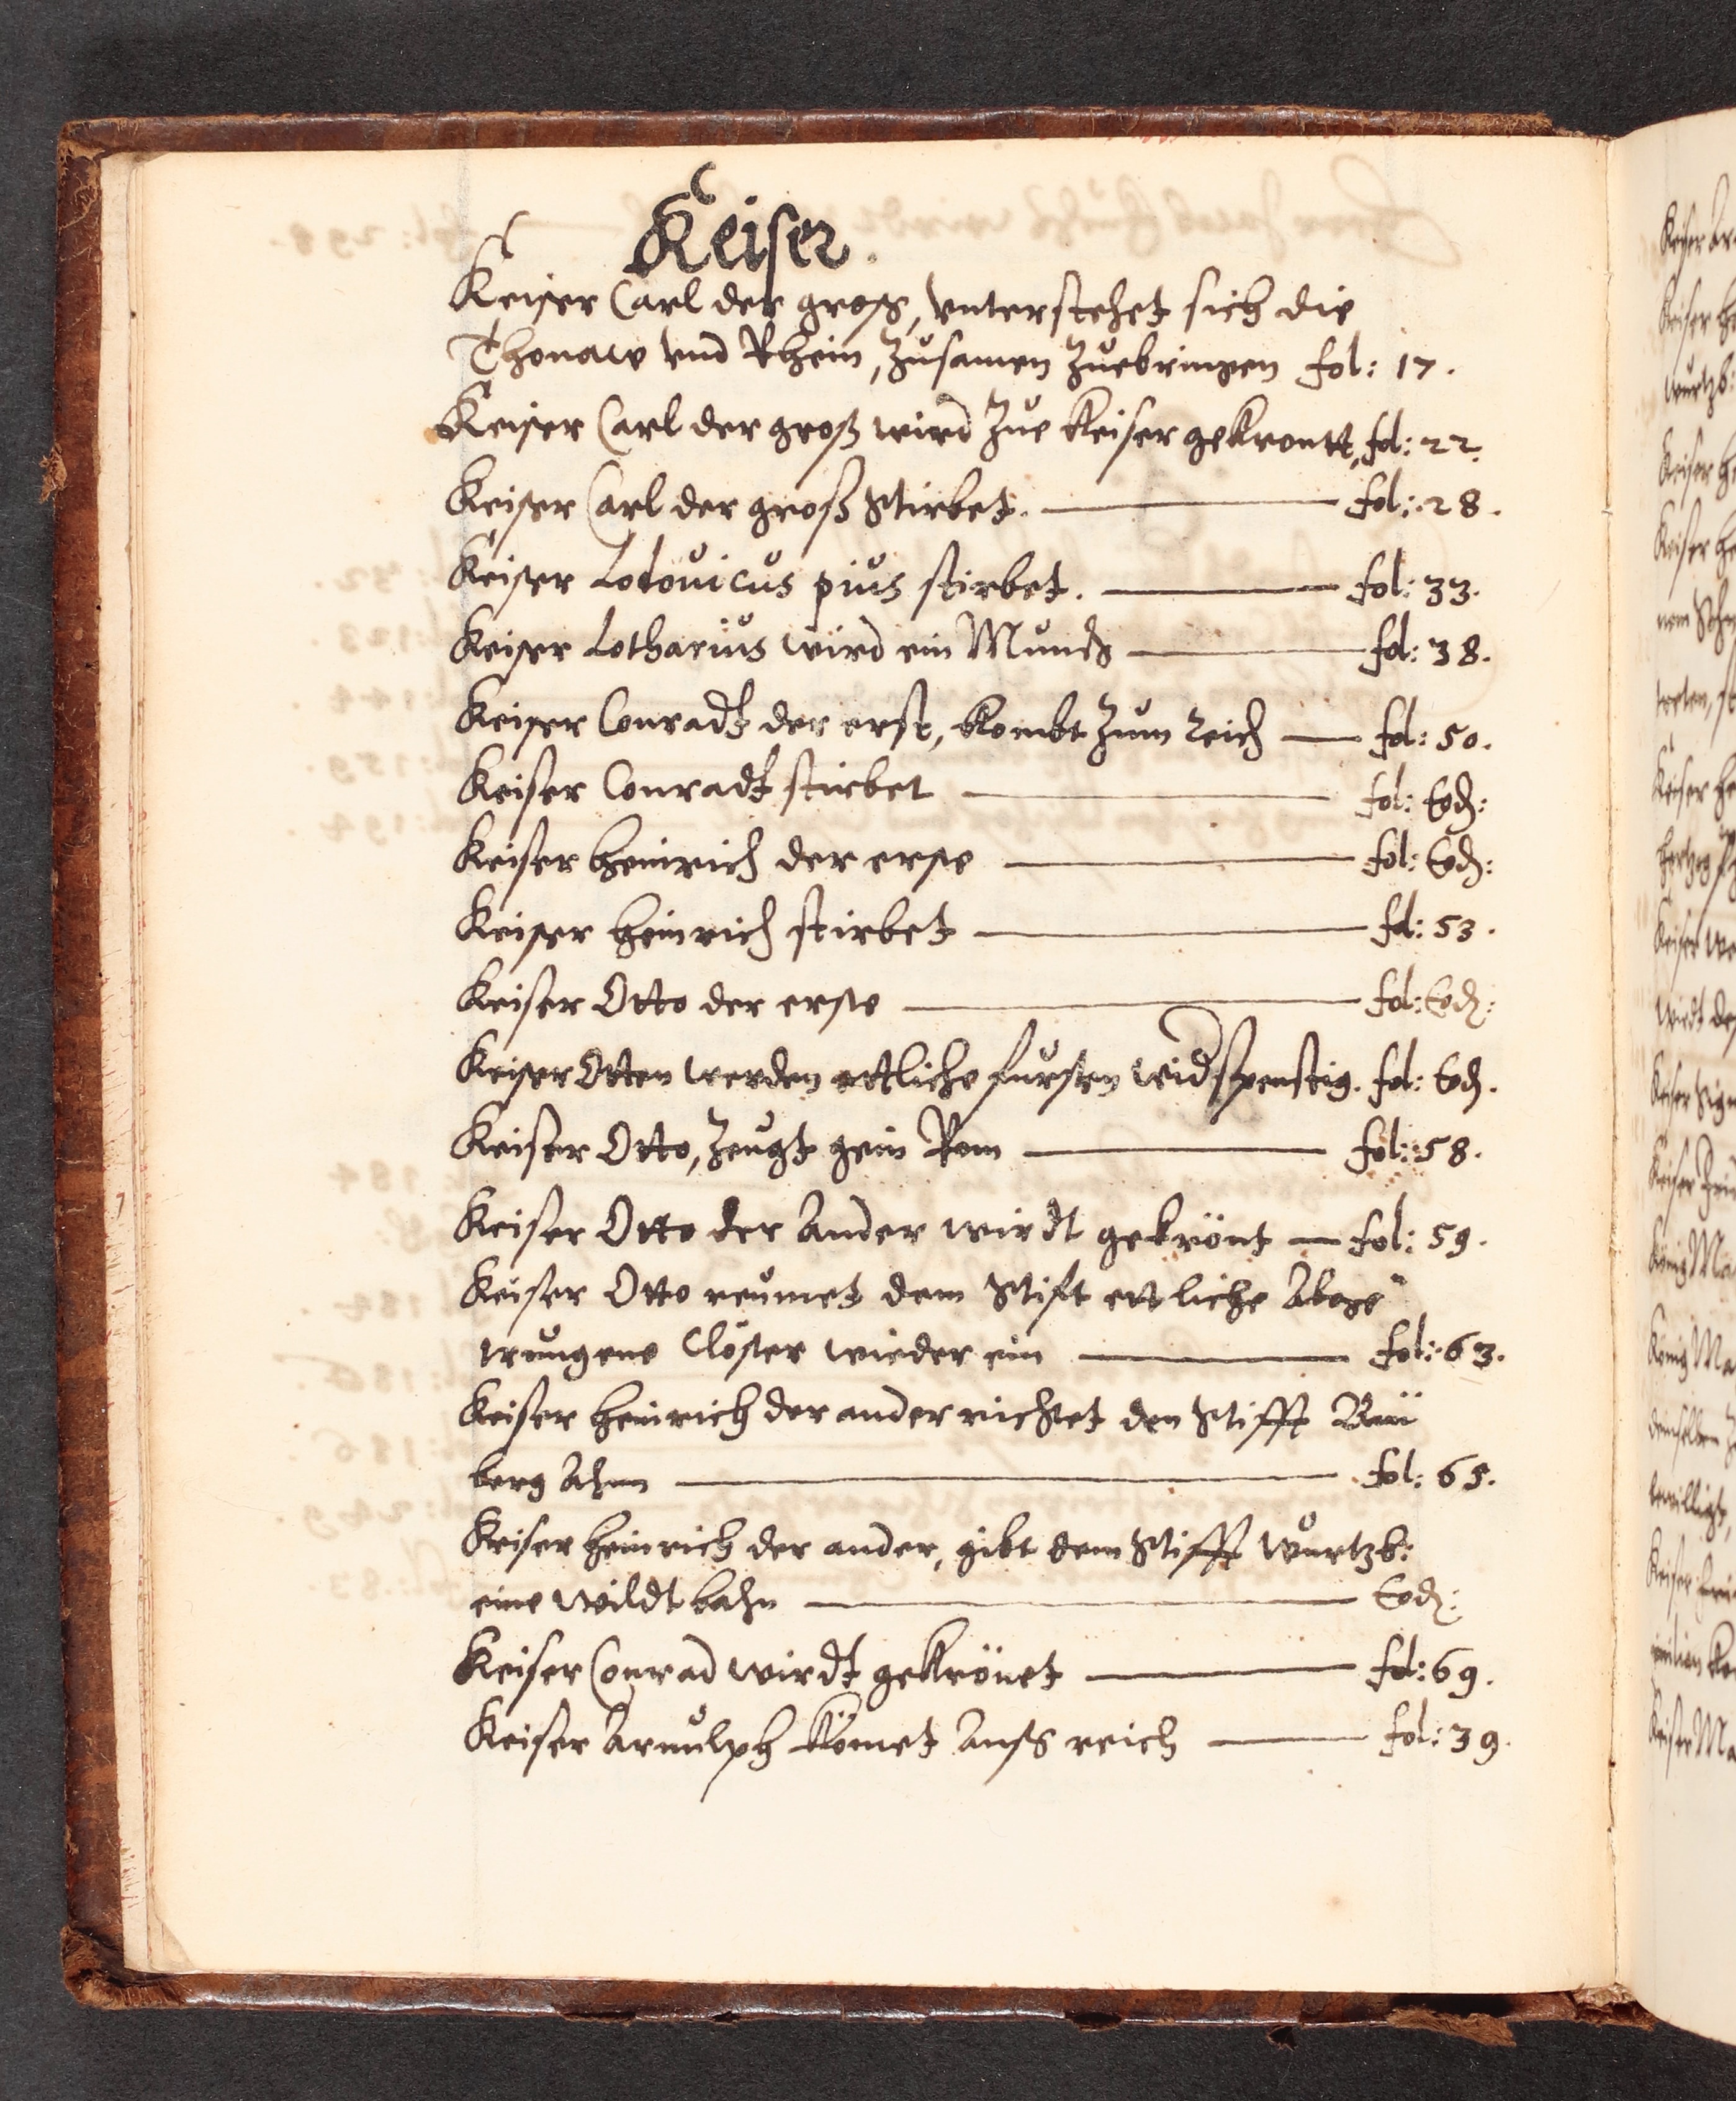 Keiser.
Keiser Carl der gross, vnterstehet sich die
Thonaw vnd Rhein, Zusamen Zuebringen fol: 17.
Keiser Carl der groß wird Zue Keiser gekrontt, fol: 22.
Keiser Carl der groß Stirbet. fol: 28.
Keiser Lodouicus pius stirbet. fol: 33.
Keiser Lotharius wird ein Munch fol: 38.
Keiser Conradt der erst, Kombt Zum reich fol: 50.
Keiser Conradt stirbet fol: Eod:
Keiser Heinrich der erste fol: Eod:
Keiser Heinrich stirbet fol: 53.
Keiser Otto der erste fol: Eod:
Keiser Otten werden ettliche fursten widspenstig. fol: Eod.
Keiser Otto, Zeugt gein Rom fol: 58.
Keiser Otto der Ander wirdt gekrönt fol: 59.
Keiser Otto reumet dem Stift ettliche Abge
trungene Clöster wieder ein fol: 63.
Keiser Heinrich der ander richtet den Stifft Bam
berg Ahnn fol: 65.
Keiser Heinrich der ander, gibt dem Stifft wurtzb:
eine Wildt bahn Eod:
Keiser Conrad wirdt gekrönet fol: 69.
Keiser Arnulph Kömet Anß reich fol: 39.